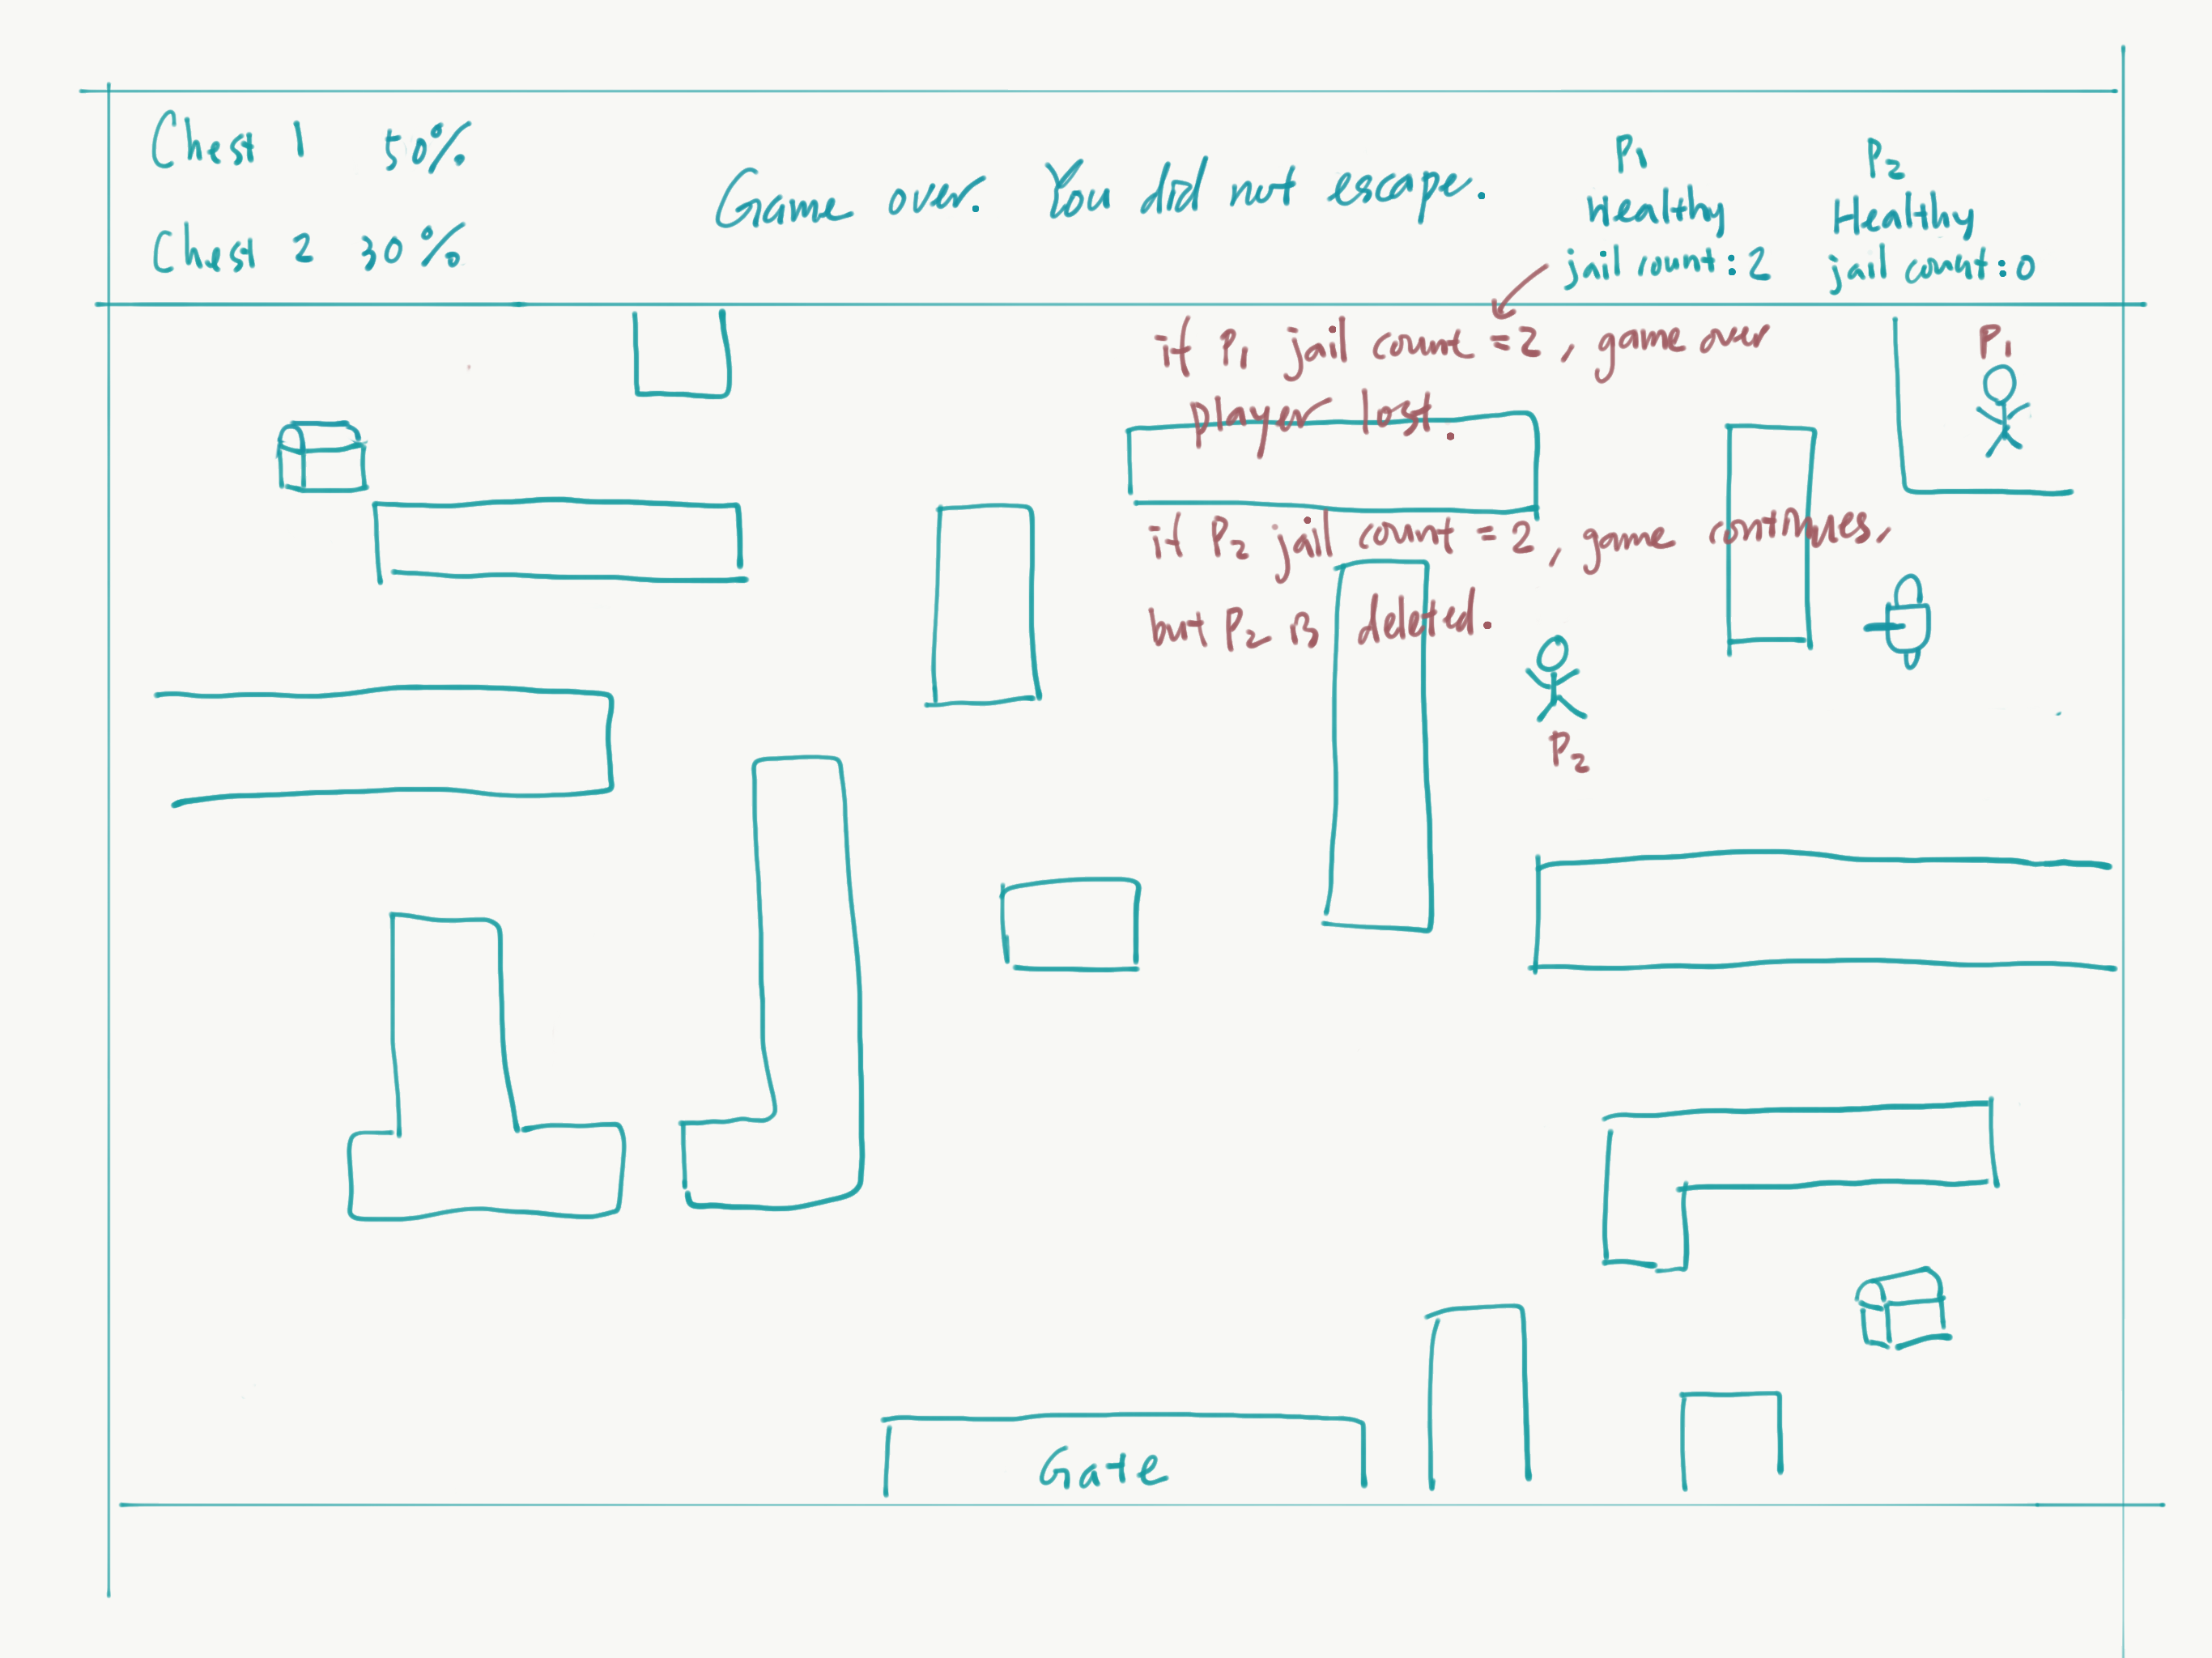 Chest 1 50%
Chest 2 30%
Game over. You did not escape.
P1
Healthy
jail count: 2
P2
Healthy
jail count: 0
if P1 jail count = 2, game over
player lost.
if P2 jail count = 2, game continues.
but P2 is deleted.
P1
P2
Gate